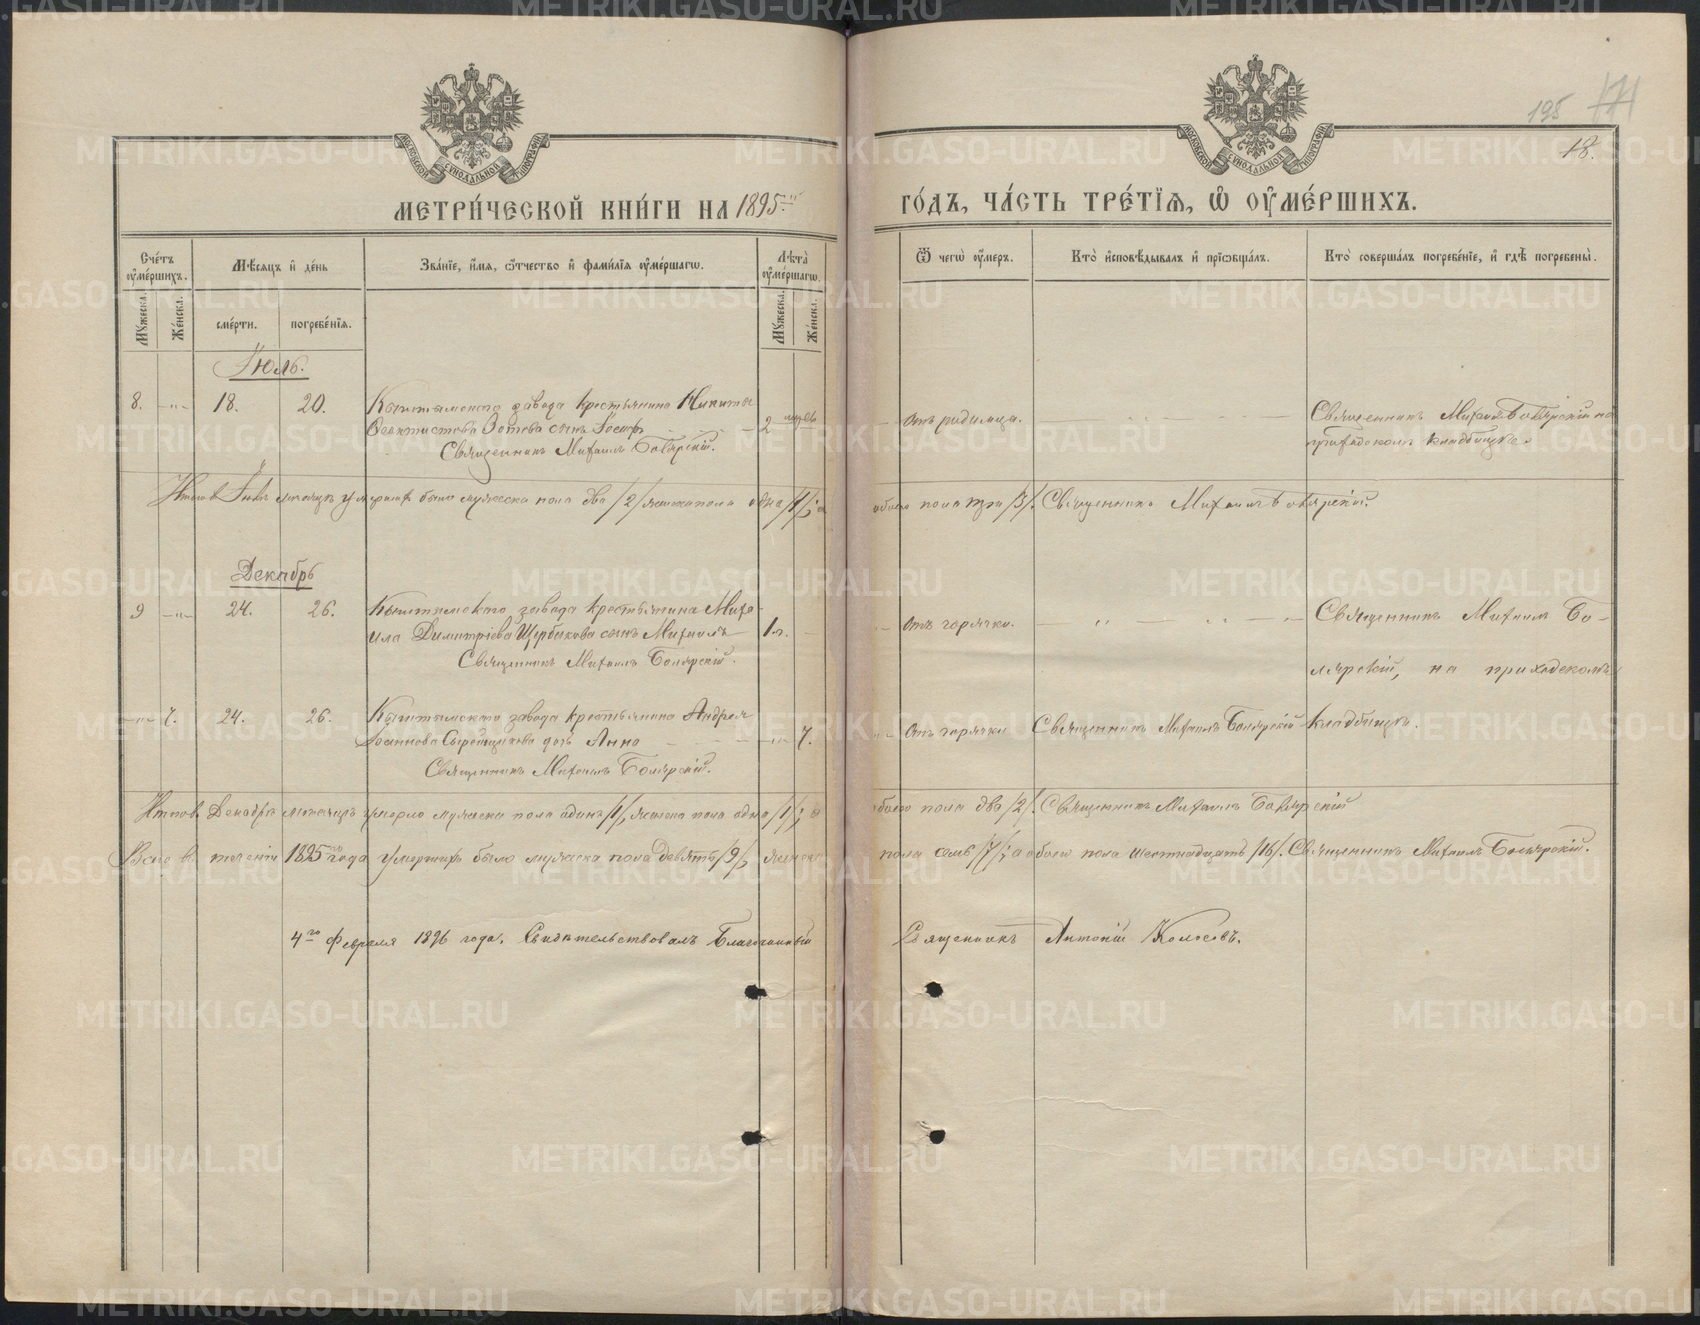 195 171
18.
МОСКОВСКОЙ СѴНОДАЛЬНОЙ ТИПОГРАФІИ
МОСКОВСКОЙ СѴНОДАЛЬНОЙ ТИПОГРАФІИ
МЕТРИ́ЧЕСКОЙ КНИ́ГИ НА 1895й
ГО́ДЪ, ЧА́СТЬ ТРЕ́ТІѦ, Ѡ ОУМЕ́РШИХЪ.
Сче́тъ оуме́ршихъ.
Мꙋжеска.
Же́нска.
Мѣ́сяцъ и де́нь
сме́рти.
погребе́нїѧ.
Зва́нїе, и́мѧ, ѻ́тчество и фами́лїѧ оуме́ршагѡ.
Лѣта̀ оуме́ршагѡ.
Мꙋжеска.
Же́нска.
Ѿ чегѡ̀ оу́меръ.
Кто̀ и҆сповѣ́дывалъ и҆ прїѡбща́лъ.
Кто̀ соверша́лъ погребе́нїе, и҆ гдѣ̀ погребены̀.
Іюль.
8. -„- 18. 20. Кыштымскаго завода крестьянина Никиты
Ѳеоктистова Зотова сынъ Іосифъ 2
Священникъ Михаилъ Боярскій.
Отъ родимца.
Священникъ Михаилъ Боярскій на
приходскомъ кладбищѣ.
Итого въ Іюлѣ мѣсяцѣ умершихъ было мужеска пола два /2/ женска пола одна /1/; а
обоего пола три /3/. Священникъ Михаилъ Боярскій.
Декабрь
9 -„- 24. 26. Кыштымскаго завода крестьянина Миха-
ила Димитріева Щербакова сынъ Михаилъ 1 г.
Священникъ Михаилъ Боярскій.
Отъ горячки. - „ - „ -
Священникъ Михаилъ Бо-
лярскій, на приходскомъ
-„- 7. 24. 26. Кыштымскаго завода крестьянина Андрея
Іоаннова Сыромщикова дочь Анна -„- 7.
Священникъ Михаилъ Болярскій.
Отъ горячки Священникъ Михаилъ Болярскій кладбищѣ.
Итого въ Декабрѣ мѣсяцѣ умерло мужеска пола одинъ /1/, женска пола одна /1/; а
обоего пола два /2/. Священникъ Михаилъ Боярскій
Всего въ теченіи 1895го года умершихъ было мужеска пола девять /9/, женска
пола семь /7/; а обоего пола шестнадцать /16/. Священникъ Михаилъ Болярскій.
4го Февраля 1896 года. Свидѣтельствовалъ Благочинный
Священникъ Антоній Колосовъ.
METRIKI.GASO-URAL.RU